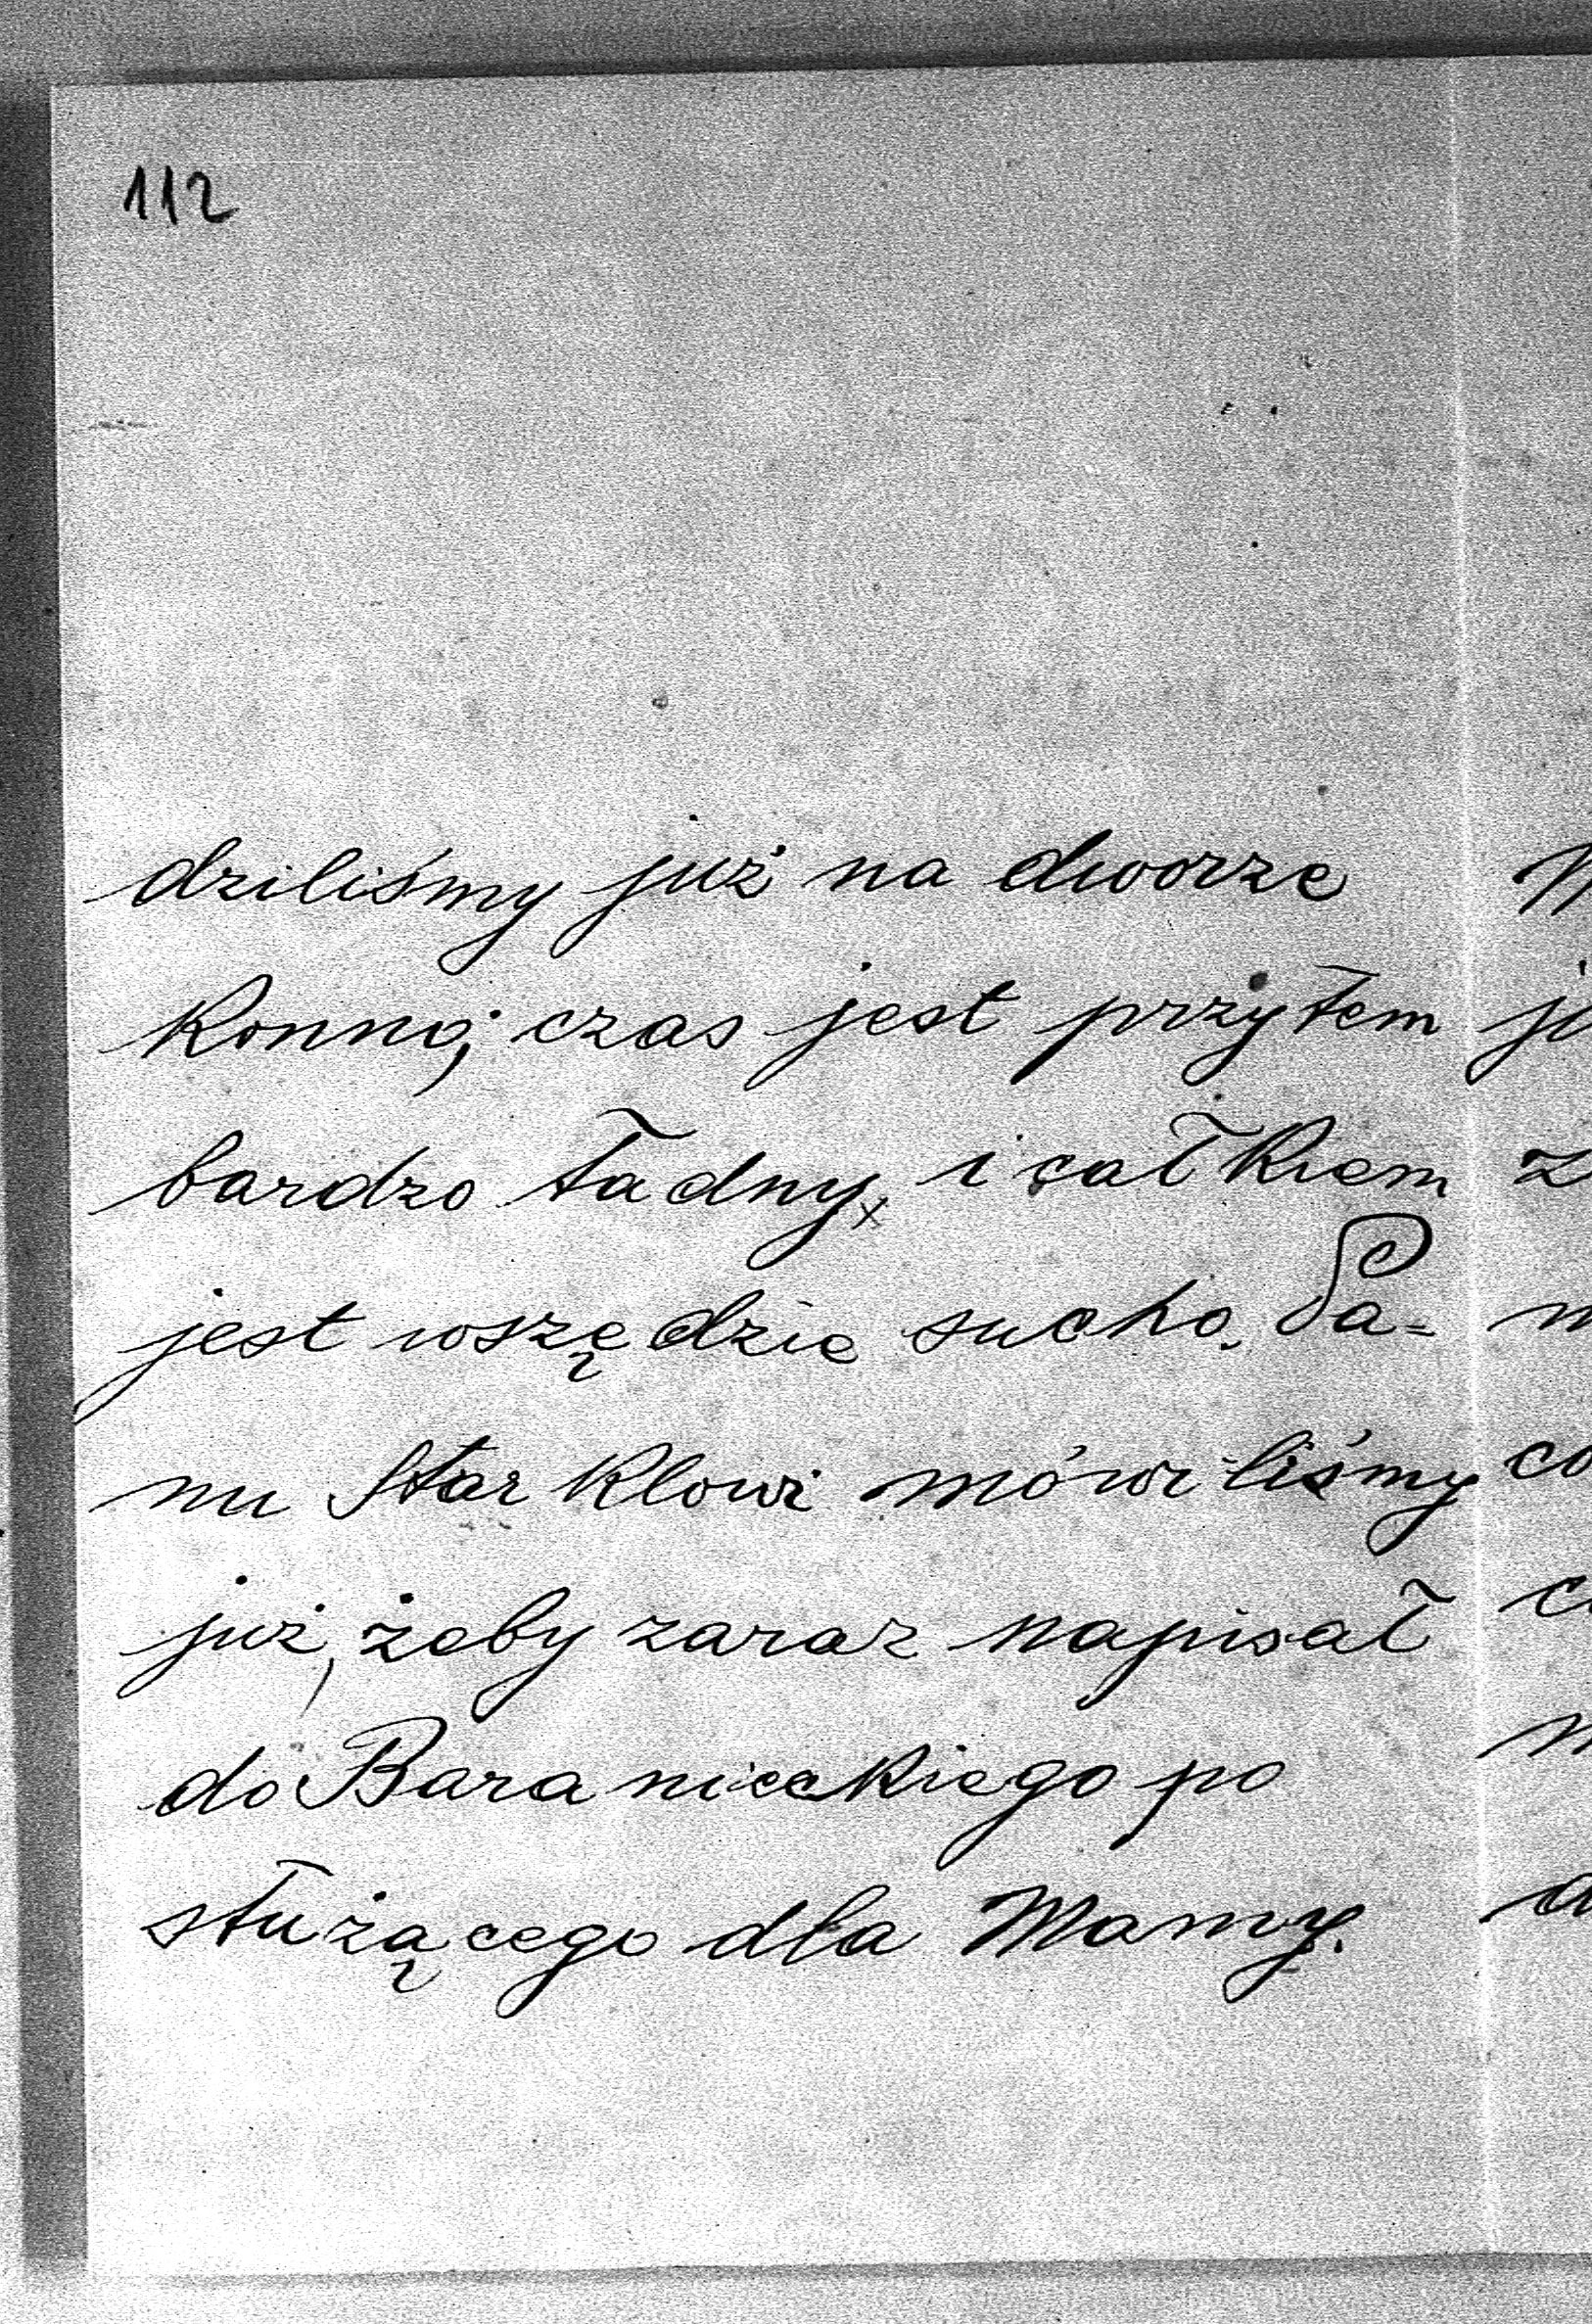 112
dziliśmy już na dworze
konno; czas jest przytem
bardzo ładny, i całkiem
jest wszędzie sucho. Pa=
nu Starklowi mówiliśmy
już, żeby zaraz napisał
do Baranieckiego po
służącego dla Mamy.